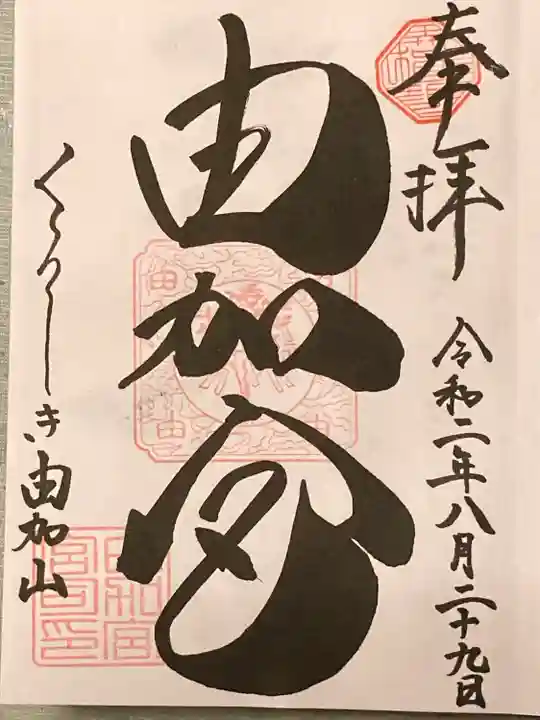 奉拝
令和二年八月二十九日
由加宮
くらしき由加山